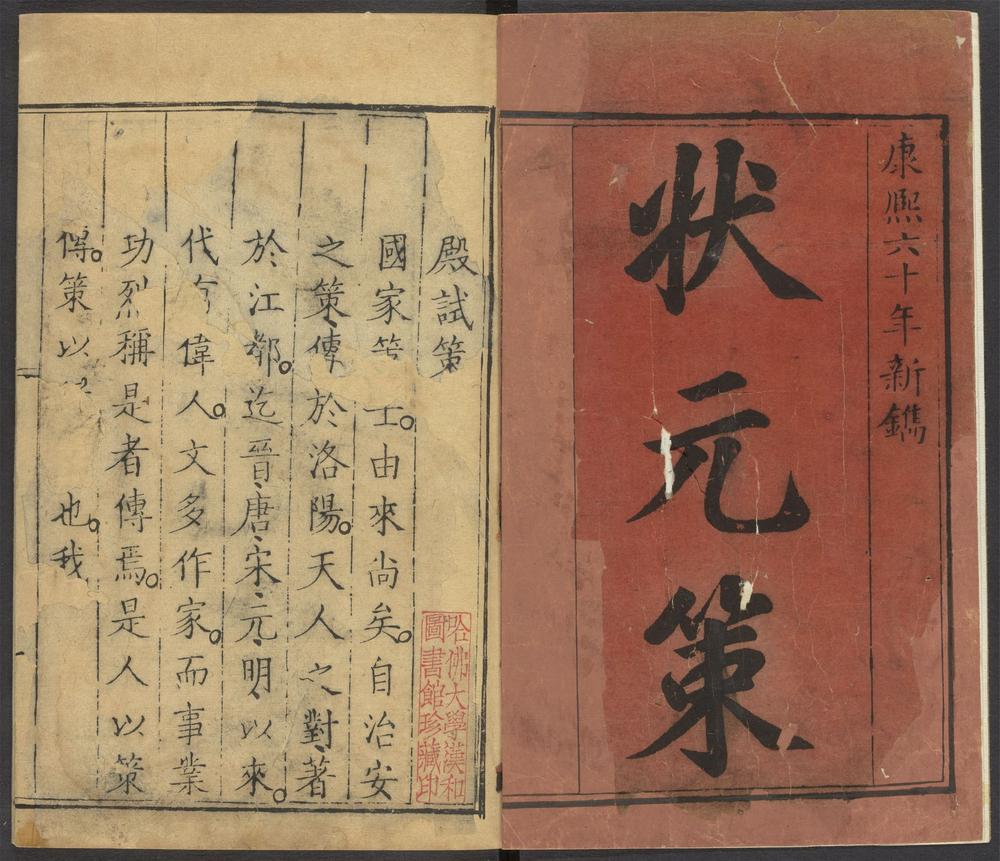 康熙六十年新鐫
狀元策
殿試策
國家 士。由來尚矣。自治安
之策、傳於洛陽。天人之對、著
於江都。迄晉、唐、宋、元、明、以來。
代 偉人。文多作家。而事業
功烈稱是者傳焉。是人以策
傳。策以 也。我
哈佛大學漢和
圖書館珍藏印